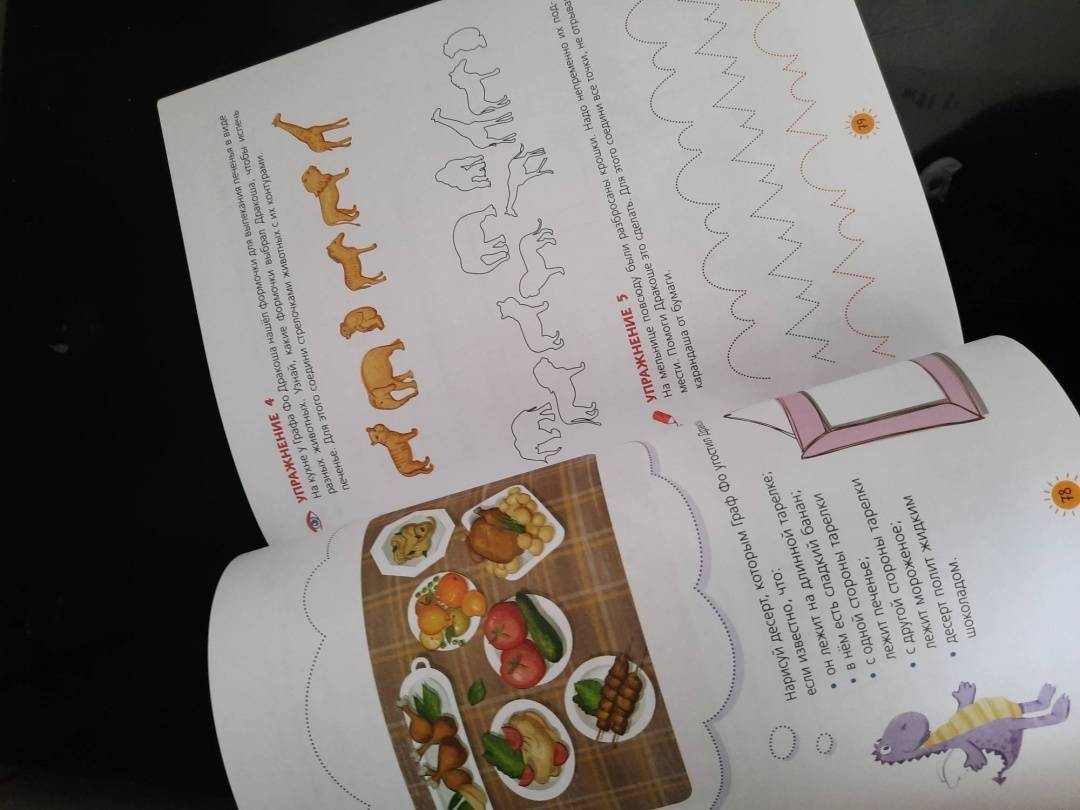 Нарисуй десерт, которым Граф Фо угостил
если известно, что:
• он лежит на длинной тарелке;
• в нём есть сладкий банан;
• с одной стороны тарелки
лежит печенье;
• с другой стороны тарелки
лежит мороженое;
• десерт полит жидким
шоколадом.
78
УПРАЖНЕНИЕ 4
На кухне у Графа Фо Дракоша нашёл формочки для выпекания печенья в виде
разных животных. Узнай, какие формочки выбрал Дракоша, чтобы испечь
печенье. Для этого соедини стрелочками животных с их контурами.
УПРАЖНЕНИЕ 5
На мельнице повсюду были разбросаны крошки. Надо непременно их под-
мести. Помоги Дракоше это сделать. Для этого соедини все точки, не отрывая
карандаша от бумаги.
79